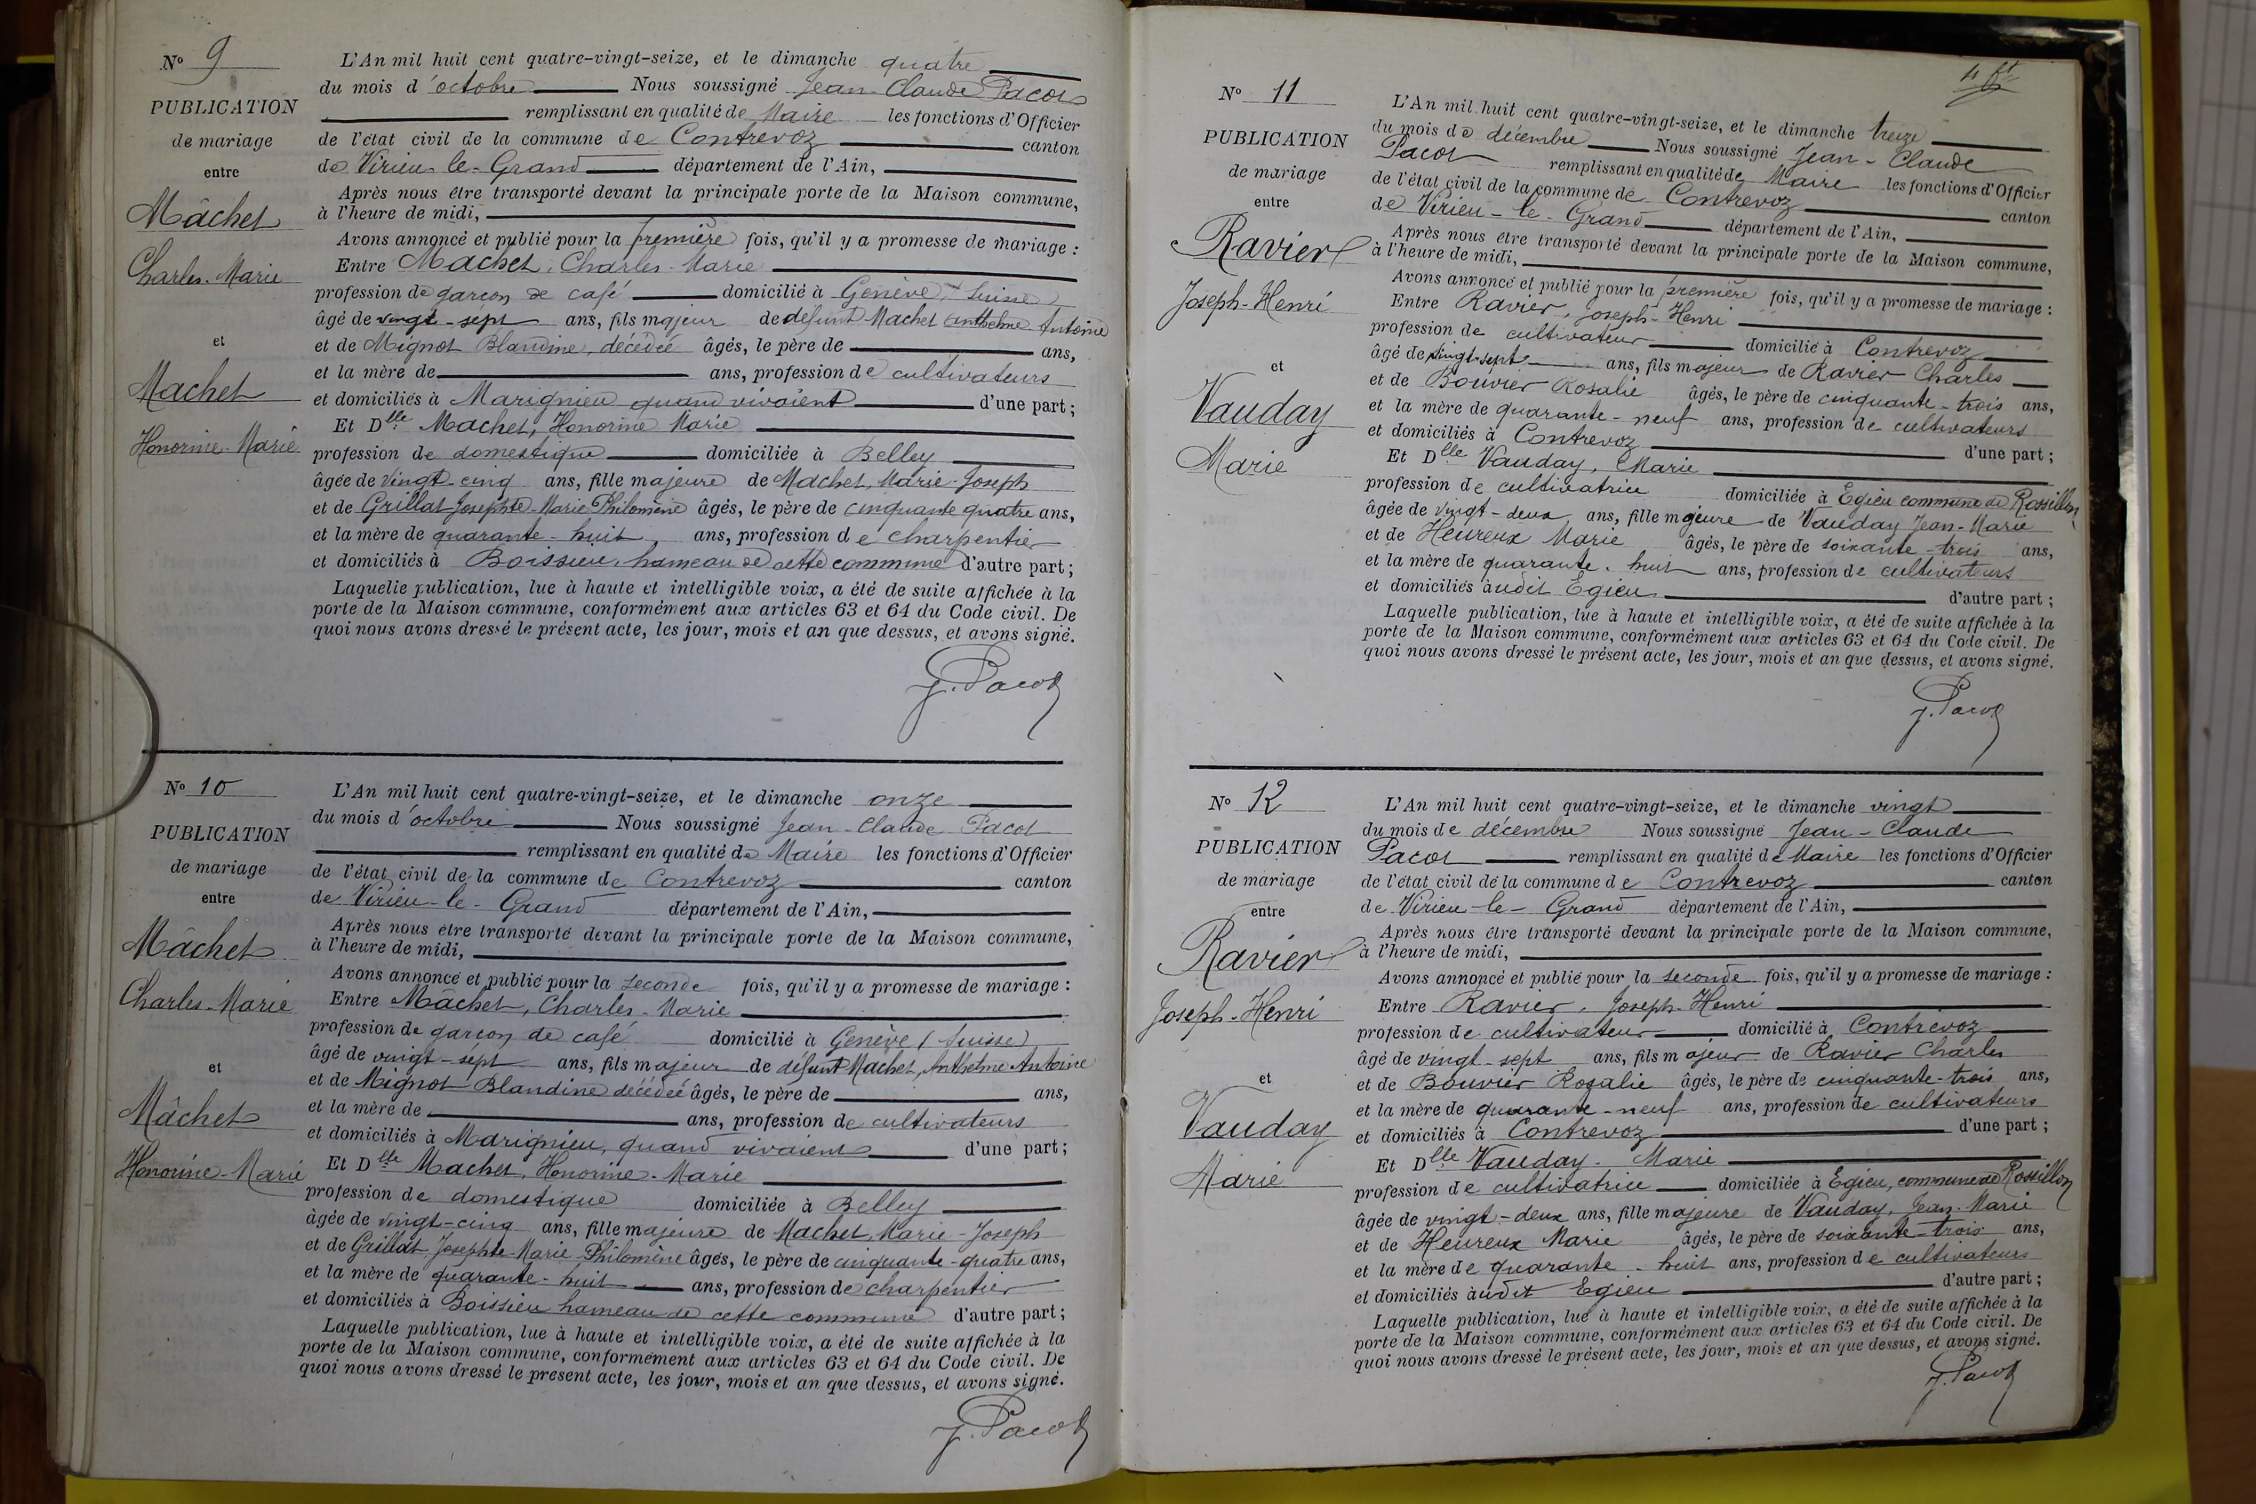 N° 9
PUBLICATION
de mariage
entre
Mâchet
Charles-Marie
et
Machet
Honorine-Marie
L'An mil huit cent quatre-vingt-seize, et le dimanche quatre
du mois d'octobre Nous soussigné Jean-Claude Pacot
remplissant en qualité de Maire les fonctions d'Officier
de l'état civil de la commune de Contrevoz canton
de Virieu-le-Grand département de l'Ain,
Après nous être transporté devant la principale porte de la Maison commune,
à l'heure de midi,
Avons annoncé et publié pour la première fois, qu'il y a promesse de mariage :
Entre Machet, Charles-Marie
profession de garçon de café domicilié à Genève, Suisse
âgé de vingt-sept ans, fils majeur de défunt Machet Anthelme Antoine
et de Mignot Blandine, décédée âgés, le père de ans,
et la mère de ans, profession de cultivateurs
et domiciliés à Marignieu quand vivaient d'une part ;
Et Dlle Machet, Honorine Marie
profession de domestique domiciliée à Belley
âgée de vingt-cinq ans, fille majeure de Machet, Marie-Joseph
et de Grillat Josephte-Marie Philomène âgés, le père de cinquante quatre ans,
et la mère de quarante-huit, ans, profession de charpentier
et domiciliés à Boissieu, hameau de cette commune d'autre part ;
Laquelle publication, lue à haute et intelligible voix, a été de suite affichée à la
porte de la Maison commune, conformément aux articles 63 et 64 du Code civil. De
quoi nous avons dressé le présent acte, les jour, mois et an que dessus, et avons signé.
J. Pacot
N° 10
PUBLICATION
de mariage
entre
Mâchet
Charles-Marie
et
Mâchet
Honorine-Marie
L'An mil huit cent quatre-vingt-seize, et le dimanche onze
du mois d'octobre Nous soussigné Jean-Claude Pacot
remplissant en qualité de Maire les fonctions d'Officier
de l'état civil de la commune de Contrevoz canton
de Virieu-le-Grand département de l'Ain,
Après nous être transporté devant la principale porte de la Maison commune,
à l'heure de midi,
Avons annoncé et publié pour la seconde fois, qu'il y a promesse de mariage :
Entre Mâchet, Charles-Marie
profession de garçon de café domicilié à Genève (Suisse)
âgé de vingt-sept ans, fils majeur de défunt Machet, Anthelme-Antoine
et de Mignot Blandine décédée âgés, le père de ans,
et la mère de ans, profession de cultivateurs
et domiciliés à Marignieu, quand vivaient d'une part ;
Et Dlle Machet, Honorine-Marie
profession de domestique domiciliée à Belley
âgée de vingt-cinq ans, fille majeure de Machet, Marie-Joseph
et de Grillat Josephte-Marie Philomène âgés, le père de cinquante-quatre ans,
et la mère de quarante-huit ans, profession de charpentier
et domiciliés à Boissieu hameau de cette commune d'autre part ;
Laquelle publication, lue à haute et intelligible voix, a été de suite affichée à la
porte de la Maison commune, conformément aux articles 63 et 64 du Code civil. De
quoi nous avons dressé le présent acte, les jour, mois et an que dessus, et avons signé.
J. Pacot
N° 11
PUBLICATION
de mariage
entre
Ravier
Joseph-Henri
et
Vauday
Marie
L'An mil huit cent quatre-vingt-seize, et le dimanche treize
du mois de décembre Nous soussigné Jean-Claude
Pacot remplissant en qualité de Maire les fonctions d'Officier
de l'état civil de la commune de Contrevoz canton
de Virieu-le-Grand département de l'Ain,
Après nous être transporté devant la principale porte de la Maison commune,
à l'heure de midi,
Avons annoncé et publié pour la première fois, qu'il y a promesse de mariage :
Entre Ravier, Joseph-Henri
profession de cultivateur domicilié à Contrevoz
âgé de vingt-sept ans, fils majeur de Ravier Charles
et de Bouvier Rosalie âgés, le père de cinquante-trois ans,
et la mère de quarante-neuf ans, profession de cultivateurs
et domiciliés à Contrevoz d'une part ;
Et Dlle Vauday, Marie
profession de cultivatrice domiciliée à Egieu commune de Rossillon
âgée de vingt-deux ans, fille majeure de Vauday Jean-Marie
et de Heureux Marie âgés, le père de soixante-trois ans,
et la mère de quarante-huit ans, profession de cultivateurs
et domiciliés audit Egieu d'autre part ;
Laquelle publication, lue à haute et intelligible voix, a été de suite affichée à la
porte de la Maison commune, conformément aux articles 63 et 64 du Code civil. De
quoi nous avons dressé le présent acte, les jour, mois et an que dessus, et avons signé.
J. Pacot
N° 12
PUBLICATION
de mariage
entre
Ravier
Joseph-Henri
et
Vauday
Marie
L'An mil huit cent quatre-vingt-seize, et le dimanche vingt
du mois de décembre Nous soussigné Jean-Claude
Pacot remplissant en qualité de Maire les fonctions d'Officier
de l'état civil de la commune de Contrevoz canton
de Virieu-le-Grand département de l'Ain,
Après nous être transporté devant la principale porte de la Maison commune,
à l'heure de midi,
Avons annoncé et publié pour la seconde fois, qu'il y a promesse de mariage :
Entre Ravier, Joseph-Henri
profession de cultivateur domicilié à Contrevoz
âgé de vingt-sept ans, fils majeur de Ravier Charles
et de Bouvier Rosalie âgés, le père de cinquante-trois ans,
et la mère de quarante-neuf ans, profession de cultivateurs
et domiciliés à Contrevoz d'une part ;
Et Dlle Vauday. Marie
profession de cultivatrice domiciliée à Egieu, commune de Rossillon
âgée de vingt-deux ans, fille majeure de Vauday, Jean-Marie
et de Heureux Marie âgés, le père de soixante-trois ans,
et la mère de quarante-huit ans, profession de cultivateurs
et domiciliés audit Egieu d'autre part ;
Laquelle publication, lue à haute et intelligible voix, a été de suite affichée à la
porte de la Maison commune, conformément aux articles 63 et 64 du Code civil. De
quoi nous avons dressé le présent acte, les jour, mois et an que dessus, et avons signé.
J. Pacot